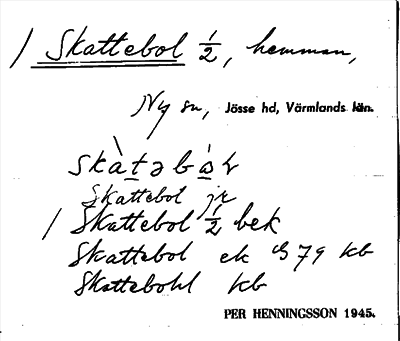 / Skattebol 1/2, hemman,
Ny sn, Jösse hd, Värmlands län.
skàtəbòl
Skattebol jr
/ Skattebol 1/2 bek
Skattebol ek 79 kb
Skattebohl kb
PER HENNINGSSON 1945.